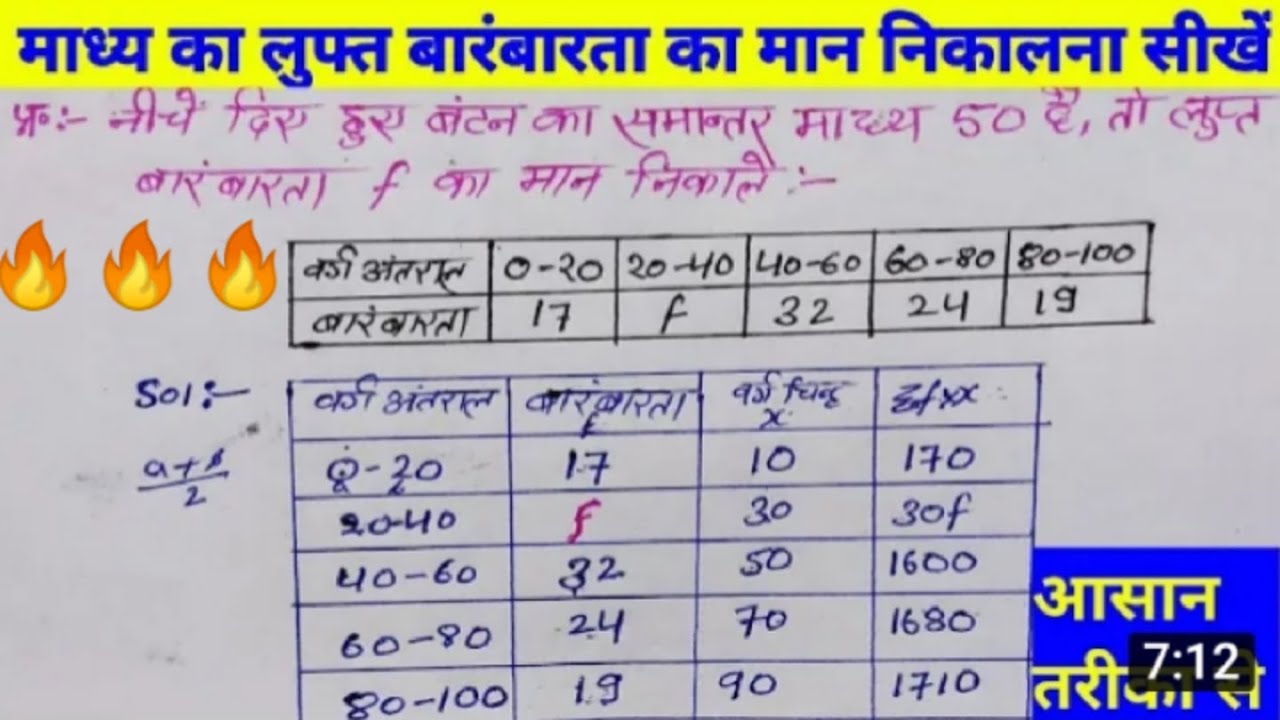 माध्य का लुफ्त बारंबारता का मान निकालना सीखें
प्र०:- नीचे दिए हुए बंटन का समान्तर माध्य 50 है, तो लुप्त
बारंबारता f का मान निकाले :-
वर्ग अंतराल 0-20 20-40 40-60 60-80 80-100
बारंबारता 17 f 32 24 19
Sol:-
वर्ग अंतराल बारंबारता f वर्ग चिन्ह x Σf×x
a+b/2
0-20 17 10 170
20-40 f 30 30f
40-60 32 50 1600
60-80 24 70 1680
80-100 19 90 1710
आसान
तरीका से
7:12